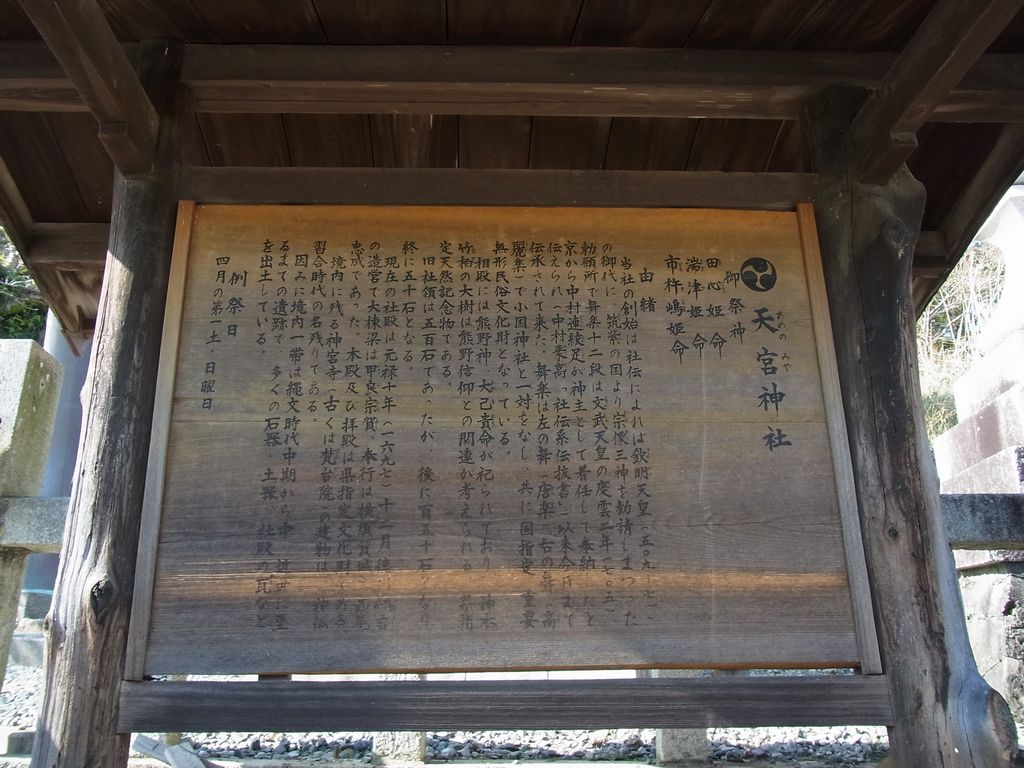 天宮神社
あめの みや
御祭神
田心姫命
湍津姫命
市杵嶋姫命
由緒
当社の創始は社伝によれば欽明天皇(五〇九―七一)
の御代に、筑紫の国より宗像三神を勧請しまつった
勅願所で舞楽十二段は文武天皇の慶雲二年(七〇五)
京から中村連綾足が神主として着任して奉納したと
伝えられ、中村乗高「社伝系伝抜書」以来今日まで
伝承されて来た。舞楽は左の舞(唐楽)右の舞(高
麗楽)で小国神社と一対をなし、共に国指定・重要
無形民俗文化財となっている。
相殿には熊野神、大己貴命が祀られており、神木
竹柏の大樹は熊野信仰との関連が考えられる、県指
定天然記念物である。
旧社領は五百石であったが、後に百五十石となり、
終に五十石となる。
現在の社殿は元禄十年(一六九七)十一月
の造営で大棟梁は甲良宗賀、奉行は横須賀城
忠成であった。本殿及び拝殿は県指定文化財である
境内に残る神宮寺(古くは梵台院)の建物は、神仏
習合時代の名残りである。
因みに境内一帯は縄文時代中期から中、近世に至
るまでの遺跡で、多くの石器、土器、社殿の瓦など
を出土している。
例祭日
四月の第一土・日曜日